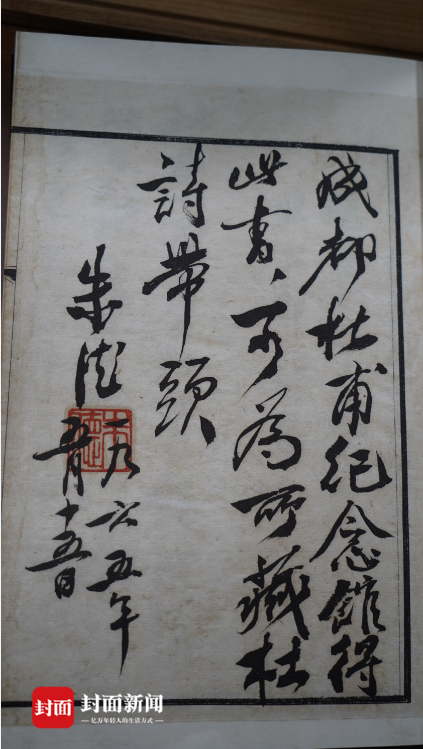 成都杜甫紀念館得
此書，可為所藏杜
詩帶頭
朱德
一九六五年
五月十五日
朱德
封面
封面新闻
亿万年轻人的生活方式